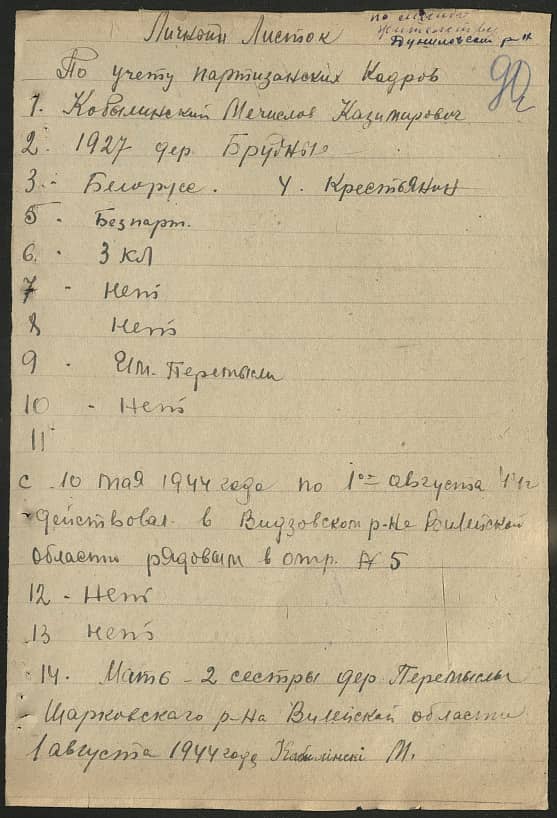 по месту
жительству
Дуниловский р-н
90
Личный Листок
По учету партизанских кадров
1. Кобылинский Мечислав Казимирович
2. 1927 дер.
3. Белорус. 4. Крестьянин
5. Безпарт.
6. 3 кл
7 - Нет
8 Нет
9 - дер. Перемыслы
10 - Нет
11
с 10 мая 1944 года по 1ое августа 44г
действовал в Видзовском р-не Вилейской
области рядовым в отр. № 5
12 - Нет
13 Нет
14. Мать - 2 сестры дер. Перемыслы
Шарковского р-на Вилейской области
1 августа 1944 года Кабылінскі М.